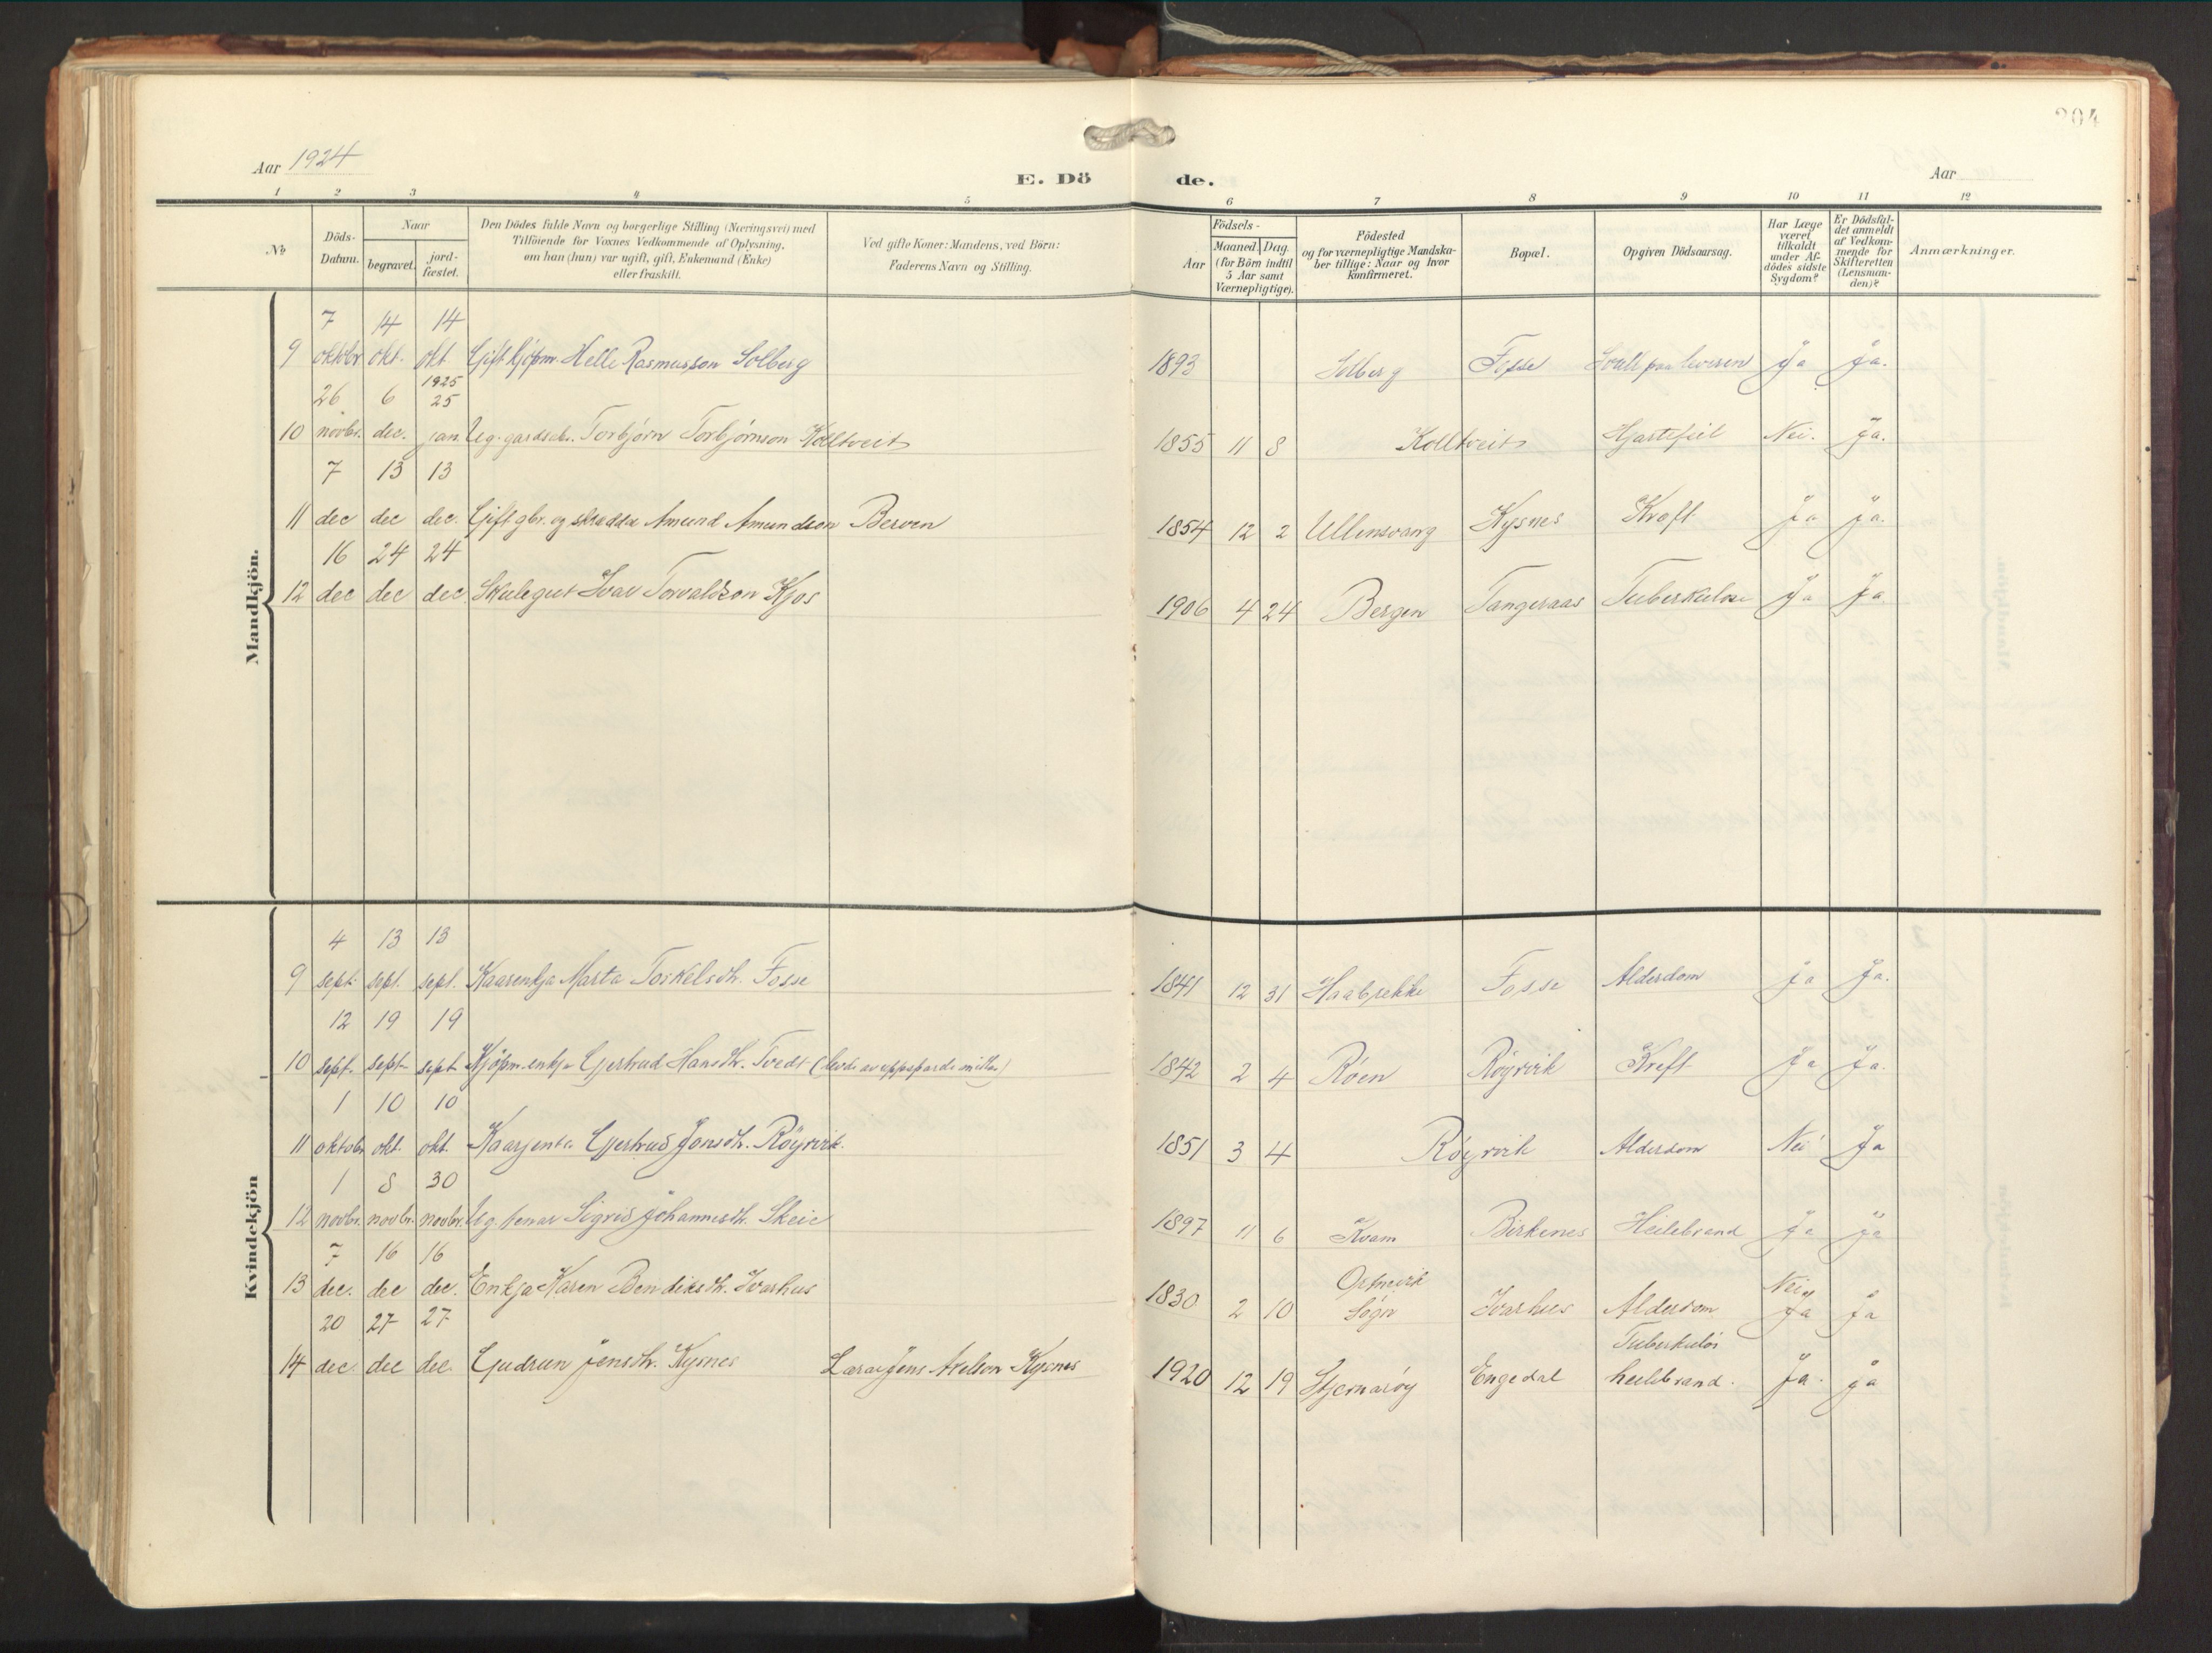 204
Aar 1924
E. Dö de.
Aar
1 2 3 4 5 6 7 8 9 10 11 12
No
Döds-Datum.
Naar
begravet.
jord-fæstet.
Den Dödes fulde Navn og borgerlige Stilling (Næringsvei) med
Tilföiende for Voxnes Vedkommende af Oplysning,
om han (hun) var ugift, gift, Enkemand (Enke)
eller fraskilt.
Ved gifte Koner: Mandens, ved Börn:
Faderens Navn og Stilling.
Födsels-
Aar
Maaned. Dag.
(for Börn indtil
5 Aar samt
Værnepligtige).
Födested
og for værnepligtige Mandska-
ber tillige: Naar og hvor
konfirmeret.
Bopæl.
Opgiven Dödsaarsag.
Har Læge
været
tilkaldt
under Af-
dödes sidste
Sygdom?
Er Dödsfal-
det anmeldt
af Vedkom-
mende for
Skifteretten
(Lensman-
den)?
Anmærkninger.
Mandkjön.
7 14 14
9 oktobr okt. okt. Gift kjöpm. Helle Rasmusson Solberg 1893 Solberg Fosse Ja Ja.
26 6 1925 25
10 novbr. dec. jan. Ug. Torbjørn Torbjørnson Kolltveit 1855 11 8 Kolltveit Hjartefeil Nei. Ja.
7 13 13
11 dec dec dec. Gift gbr. og skrædder Amund Amundson Berven 1854 12 2 Ullensvang Kysnes Kræft Ja Ja.
16 24 24
12 dec dec dec. Skulegut Ivar Torvaldson Kjos 1906 4 24 Bergen Tangeraas Tuberkulose Ja Ja
Kvindekjön
4 13 13
9 sept. sept. sept. Kaarenkja Marta Torkelsdtr. Fosse 1841 12 31 Haabrekke Fosse Alderdom Ja Ja.
12 19 19
10 sept. sept. sept. Kjöpm.enkje Gjertrud Hansdtr. Tvedt (levde av uppsparde midler) 1842 2 4 Røen Röyrvik Kreft Ja Ja.
1 10 10
11 oktobr okt. okt. Kaarjenta Gjertrud Jonsdtr. Röyrvik. 1851 3 4 Röyrvik Alderdom Nei Ja
1 8 30
12 novbr. novbr. novbr. Ug. tenar Sigrid Johannesdtr. Skeie 1897 11 6 Kvam Birkenes Heilebrand Ja Ja
7 16 16
13 dec. dec dec. Enkja Karen Bendiksdtr. Ivarhus 1830 2 10 Ortnevik Sogn Ivarhus Alderdom Nei Ja Ja
20 27 27
14 dec. dec dec. Gudrun Jensdtr. Kysnes Lærar Jens Axelson Kysnes 1920 12 19 Stjernarøy Engedal Tuberkuløs heilebrand. Ja. Ja